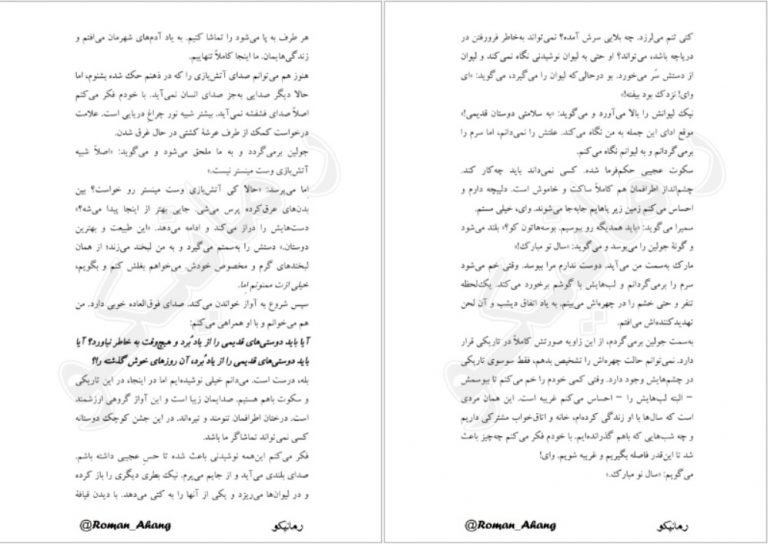 کتی تنم می‌لرزد. چه بلایی سرش آمده؟ نمی‌تواند به‌خاطر فرورفتن در
دریاچه باشد، می‌تواند؟ او حتی به لیوان نوشیدنی نگاه نمی‌کند و لیوان
از دستش سُر می‌خورد. بو درحالی‌که لیوان را می‌گیرد، می‌گوید: «ای
وای! نزدک بود بیفته!»
نیک لیوانش را بالا می‌آورد و می‌گوید: «به سلامتی دوستان قدیمی!»
موقع ادای این جمله به من نگاه می‌کند. علتش را نمی‌دانم، اما سرم را
برمی‌گردانم و به لیوانم نگاه می‌کنم.
سکوت عجیبی حکم‌فرما شده. کسی نمی‌داند باید چه‌کار کند.
چشم‌انداز اطرافمان هم کاملاً ساکت و خاموش است. دلپیچه دارم و
احساس می‌کنم زمین زیر پاهایم جابه‌جا می‌شوند. وای، خیلی مستم.
سمیرا می‌گوید: «باید همدیگه رو ببوسیم. بوسه‌هاتون کو؟» بلند می‌شود
و گونهٔ جولین را می‌بوسد و می‌گوید: «سال نو مبارک!»
مارک به‌سمت من می‌آید. دوست ندارم مرا ببوسد. وقتی خم می‌شود
سرم را برمی‌گردانم و لب‌هایش با گوشم برخورد می‌کند. یک‌لحظه
تنفر و حتی خشم را در چهره‌اش می‌بینم. به یاد اتفاق دیشب و آن لحن
تهدیدکننده‌اش می‌افتم.
به‌سمت جولین برمی‌گردم، از این زاویه صورتش کاملاً در تاریکی قرار
دارد. نمی‌توانم حالت چهره‌اش را تشخیص بدهم، فقط سوسوی تاریکی
در چشم‌هایش وجود دارد. وقتی کمی خودم را خم می‌کنم تا ببوسمش
– البته لب‌هایش را – احساس می‌کنم غریبه است. این همان مردی
است که سال‌ها با او زندگی کرده‌ام، خانه و اتاق‌خواب مشترکی داریم
و چه شب‌هایی که باهم گذرانده‌ایم. با خودم فکر می‌کنم چه‌چیز باعث
شد تا این‌قدر فاصله بگیریم و غریبه شویم. وای!
می‌گویم: «سال نو مبارک.»
رمانیکو
@Roman_Ahang
هر طرف به پا می‌شود را تماشا کنیم. به یاد آدم‌های شهرمان می‌افتم و
زندگی‌هایمان. ما اینجا کاملاً تنهاییم.
هنوز هم می‌توانم صدای آتش‌بازی را که در ذهنم حک شده بشنوم، اما
حالا دیگر صدایی به‌جز صدای انسان نمی‌آید. با خودم فکر می‌کنم
اصلاً صدای فشفشه نمی‌آید. بیشتر شبیه نور چراغ دریایی است. علامت
درخواست کمک از طرف عرشهٔ کشتی در حال غرق شدن.
جولین برمی‌گردد و به ما ملحق می‌شود و می‌گوید: «اصلاً شبیه
آتش‌بازی وست مینستر نیست.»
اما می‌پرسد: «حالا کی آتش‌بازی وست مینستر رو خواست؟ بین
بدن‌های عرق‌کرده پرس می‌شی. جایی بهتر از اینجا پیدا می‌شه؟»
دست‌هایش را دراز می‌کند و ادامه می‌دهد. «این طبیعت و بهترین
دوستان.» دستش را به‌سمتم می‌گیرد و به من لبخند می‌زند؛ از همان
لبخندهای گرم و مخصوص خودش. می‌خواهم بغلش کنم و بگویم،
خیلی ازت ممنونم اما.
سپس شروع به آواز خواندن می‌کند. صدای فوق‌العاده خوبی دارد. من
هم می‌خوانم و با او همراهی می‌کنم:
آیا باید دوستی‌های قدیمی را از یاد بُرد و هیچ‌وقت به خاطر نیاورد؟ آیا
باید دوستی‌های قدیمی را از یاد بُرد، آن روزهای خوش گذشته را؟
بله، درست است. می‌دانم خیلی نوشیده‌ایم اما در اینجا، در این تاریکی
و سکوت باهم هستیم. صدایمان زیبا است و این آواز گروهی ارزشمند
است. درختان اطرافمان تنومند و تیره‌اند. در این جشن کوچک دوستانه
کسی نمی‌تواند تماشاگر ما باشد.
فکر می‌کنم این‌همه نوشیدنی باعث شده تا حسِ عجیبی داشته باشم.
صدای بلندی می‌آید و از جایم می‌پرم. نیک بطری دیگری را باز کرده
و در لیوان‌ها می‌ریزد و یکی از آنها را به کتی می‌دهد. با دیدن قیافهٔ
رمانیکو
@Roman_Ahang
رمانیکو
رمانیکو